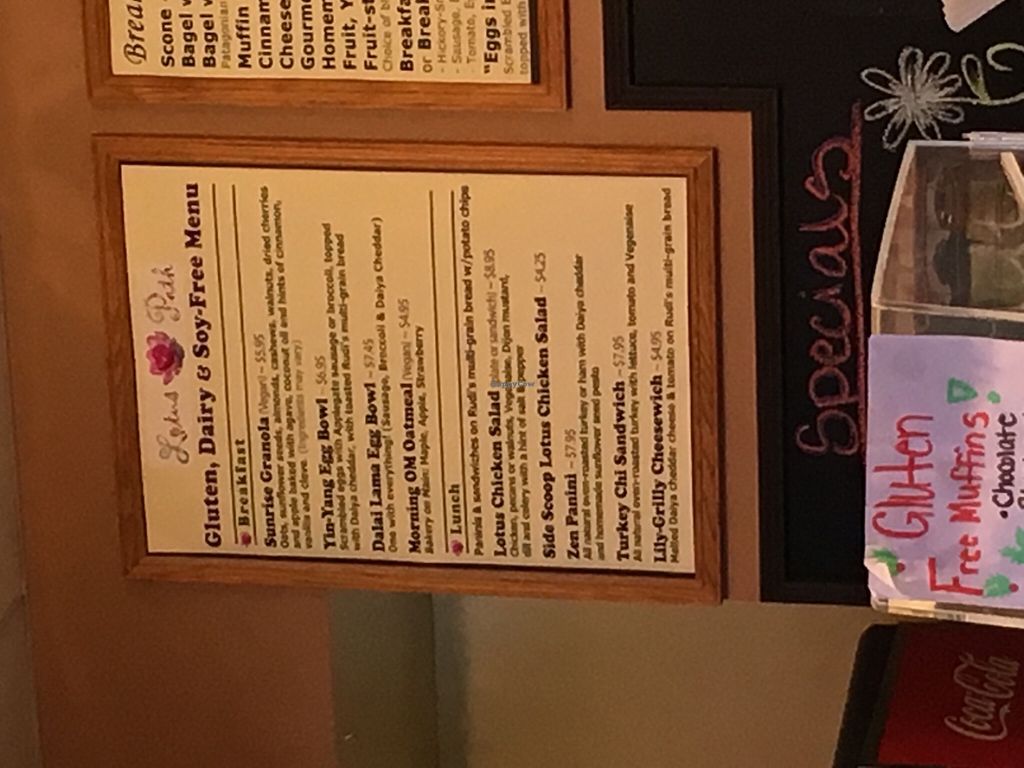 Lotus Path
Gluten, Dairy & Soy-Free Menu
Breakfast
Sunrise Granola (Vegan) – $5.95
Oats, sunflower seeds, almonds, cashews, walnuts, dried cherries
and apple baked with agave, coconut oil and hints of cinnamon,
vanilla and clove. (Ingredients may vary)
Yin-Yang Egg Bowl – $6.95
Scrambled eggs with Applegate sausage or broccoli, topped
with Daiya cheddar, with toasted Rudi's multi-grain bread
Dalai Lama Egg Bowl – $7.45
One with everything! (Sausage, Broccoli & Daiya Cheddar)
Morning OM Oatmeal (Vegan) – $4.95
Bakery on Main: Maple, Apple, Strawberry
Lunch
Paninis & sandwiches on Rudi's multi-grain bread w/potato chips
Lotus Chicken Salad (plate or sandwich) – $8.95
Chicken, pecans or walnuts, Vegenaise, Dijon mustard,
dill and celery with a hint of salt & pepper
Side Scoop Lotus Chicken Salad – $4.25
Zen Panini – $7.95
All natural oven-roasted turkey or ham with Daiya cheddar
and homemade sunflower seed pesto
Turkey Chi Sandwich – $7.95
All natural oven-roasted turkey with lettuce, tomato and Vegenaise
Lily-Grilly Cheesewich – $4.95
Melted Daiya cheddar cheese & tomato on Rudi's multi-grain bread
Scone
Bagel
Bagel
Patagonian
Muffin
Cinnam
Cheese
Gourme
Homem
Fruit, Y
Fruit-st
Choice of b
Breakfa
or Break
- Hickory-S
- Sausage,
- Tomato, E
"Eggs in
Scrambled E
topped with
Specials
Gluten
Free Muffins
• Chocolate
Coca-Cola
HappyCow